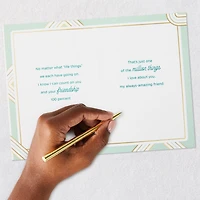 No matter what "life things"
we each have going on,
I know I can count on you
and your friendship
100 percent.
That's just one
of the million things
I love about you,
my always amazing friend!